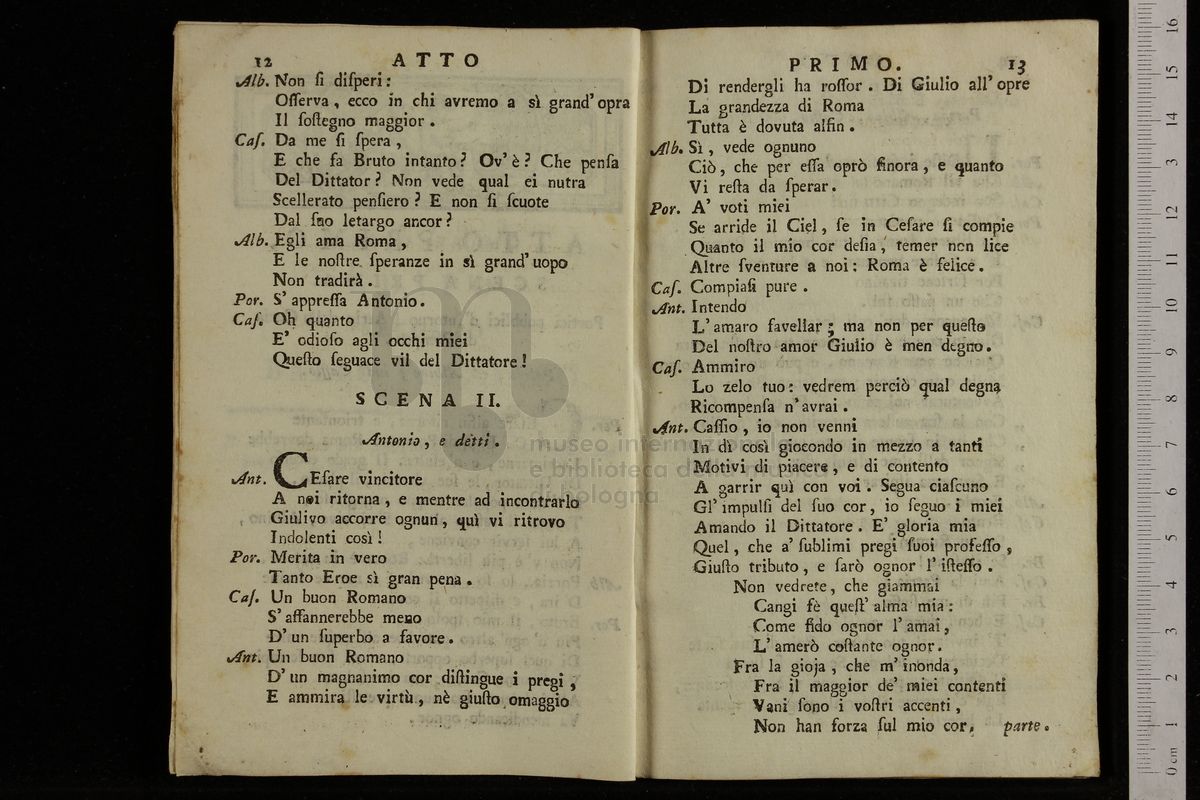 12 ATTO
Alb. Non ſi diſperi:
Oſſerva, ecco in chi avremo a sì grand' opra
Il ſoſtegno maggior.
Caſ. Da me ſi ſpera,
E che fa Bruto intanto? Ov' è? Che penſa
Del Dittator? Non vede qual ei nutra
Scellerato penſiero? E non ſi ſcuote
Dal ſuo letargo ancor?
Alb. Egli ama Roma,
E le noſtre ſperanze in sì grand' uopo
Non tradirà.
Por. S' appreſſa Antonio.
Caſ. Oh quanto
E' odioſo agli occhi miei
Queſto ſeguace vil del Dittatore!
SCENA II.
Antonio, e detti.
Ant. CEſare vincitore
A noi ritorna, e mentre ad incontrarlo
Giulivo accorre ognun, quì vi ritrovo
Indolenti così!
Por. Merita in vero
Tanto Eroe sì gran pena.
Caſ. Un buon Romano
S' affannerebbe meno
D' un ſuperbo a favore.
Ant. Un buon Romano
D' un magnanimo cor diſtingue i pregi,
E ammira le virtù, nè giuſto omaggio
PRIMO. 13
Di rendergli ha roſſor. Di Giulio all' opre
La grandezza di Roma
Tutta è dovuta alfin.
Alb. Sì, vede ognuno
Ciò, che per eſſa oprò finora, e quanto
Vi reſta da ſperar.
Por. A' voti miei
Se arride il Ciel, ſe in Ceſare ſi compie
Quanto il mio cor deſia, temer non lice
Altre ſventure a noi: Roma è felice.
Caſ. Compiaſi pure.
Ant. Intendo
L' amaro favellar; ma non per queſto
Del noſtro amor Giulio è men degno.
Caſ. Ammiro
Lo zelo tuo: vedrem perciò qual degna
Ricompenſa n' avrai.
Ant. Caſſio, io non venni
In dì così giocondo in mezzo a tanti
Motivi di piacere, e di contento
A garrir quì con voi. Segua ciaſcuno
Gl' impulſi del ſuo cor, io ſeguo i miei
Amando il Dittatore. E' gloria mia
Quel, che a' ſublimi pregi ſuoi profeſſo,
Giuſto tributo, e ſarò ognor l' iſteſſo.
Non vedrete, che giammai
Cangi fè queſt' alma mia:
Come fido ognor l' amai,
L' amerò coſtante ognor.
Fra la gioja, che m' inonda,
Fra il maggior de' miei contenti
Vani ſono i voſtri accenti,
Non han forza ſul mio cor. parte.
museo internazionale
e biblioteca della musica
di bologna
0 cm 1 2 3 4 5 6 7 8 9 10 11 12 13 14 15 16